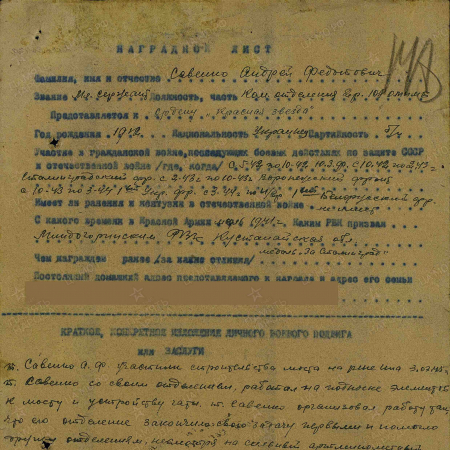 НАГРАДНОЙ ЛИСТ
Фамилия, имя и отчество Савенко Андрей Федотович
Звание Мл. сержант Должность, часть Ком. отделения
Представляется к Ордену „Красная звезда"
Год рождения 1912 Национальность Украинец Партийность б/п
Участие в гражданской войне, последующих боевых действиях по защите СССР
и отечественной войне /где, когда/ с 5.42 по 10.42
фр. с 2.43 по 10.43 Воронежский фронт
с 10.43 по 3.44 1й Укр. фр. с 3.44 по 1й Белорусский фр.
Имеет ли ранения и контузии в отечественной войне не имеет
С какого времени в Красной Армии 1941г. Каким РВК призван
РВК Кустанайская обл.
Чем награжден ранее /за какие отличия/ медаль „За Сталинград"
Постоянный домашний адрес представляемого к награде и адрес его семьи
КРАТКОЕ, КОНКРЕТНОЕ ИЗЛОЖЕНИЕ ЛИЧНОГО БОЕВОГО ПОДВИГА
ИЛИ ЗАСЛУГИ
т. Савенко А.Ф. строительства моста на реке
т. Савенко со своим отделением, работал на подноске элементов
к мосту и устройству гати. т. Савенко организовал работу так,
что его отделение закончило свою задачу первым и помогло
другим отделениям, несмотря на сильный артиллерийский